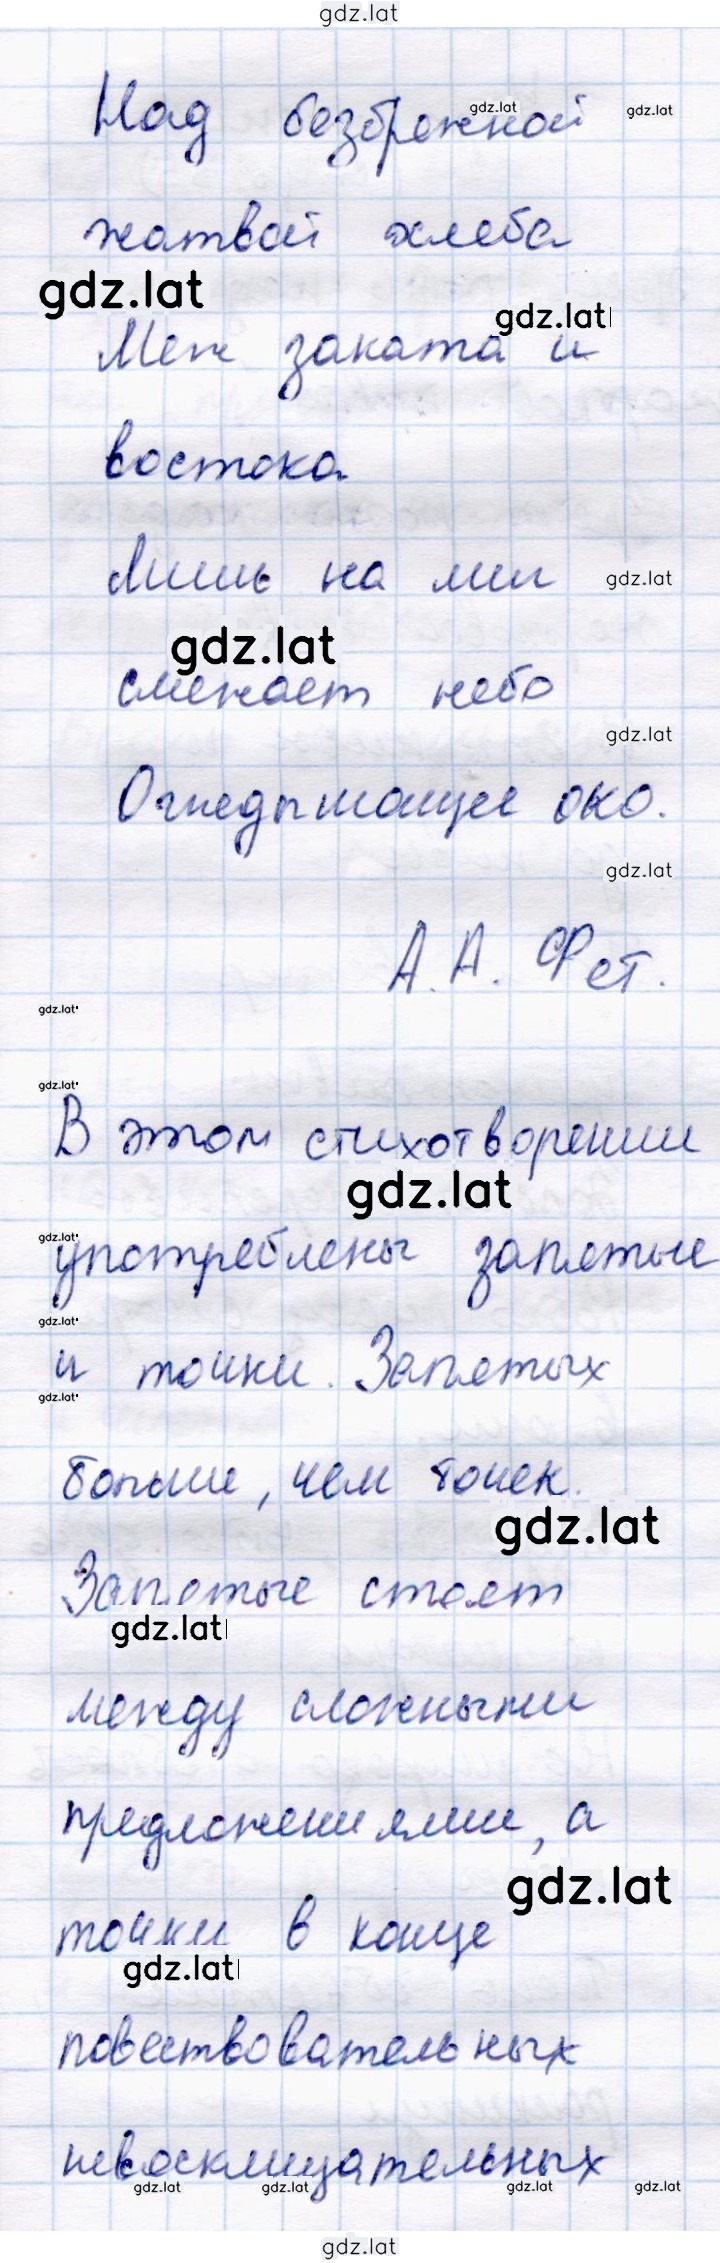 gdz.lat
Над безбрежной
gdz.lat gdz.lat
жатвой хлеба
gdz.lat
gdz.lat
Меж заката и
востока
Лишь на миг
gdz.lat
gdz.lat
смежает небо
gdz.lat
Огнедышащее око.
gdz.lat
А. А. Фет.
gdz.lat
gdz.lat
В этом стихотворении
gdz.lat
gdz.lat
употреблены запятые
gdz.lat
и точки. Запятых
gdz.lat
больше, чем точек.
gdz.lat
Запятые стоят
gdz.lat
между сложными
предложениями, а
gdz.lat
точки в конце
gdz.lat
повествовательных
невосклицательных
gdz.lat gdz.lat gdz.lat gdz.lat
gdz.lat